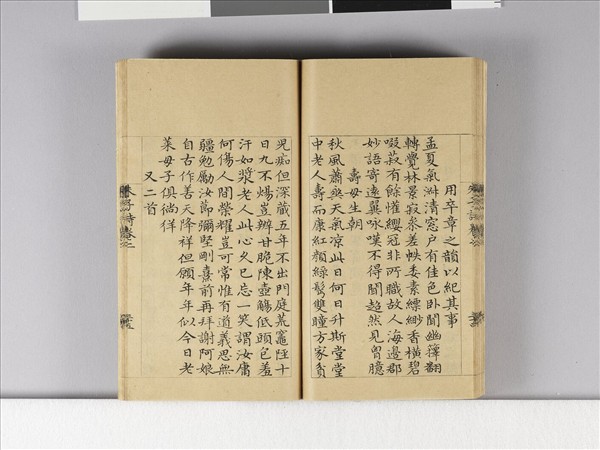 用卒章之韻以紀其事
孟夏氣淋清窓户有佳色卧聞幽簿翻
轉覺林景寂參差帙委素縹緲香橫碧
啜菽有餘懽纓冠非所職故人海邊郡
妙語寄遠翼咏嘆不得閒超然見胷臆
壽母生朝
秋風蕭爽天氣凉此日何日升斯堂堂
中老人壽而康紅顏緑鬢雙瞳方家貧
兒痴但深藏五年不出門庭荒竈陘十
日九不煬豈辦甘脆陳壺觴低頭包羞
汗如漿老人此心久已忘一笑謂汝庸
何傷人間榮耀豈可常惟有道義思無
疆勉勵汝節彌堅剛熹前再拜謝阿娘
自古作善天降祥但願年年似今日老
萊母子俱徜徉
又二首